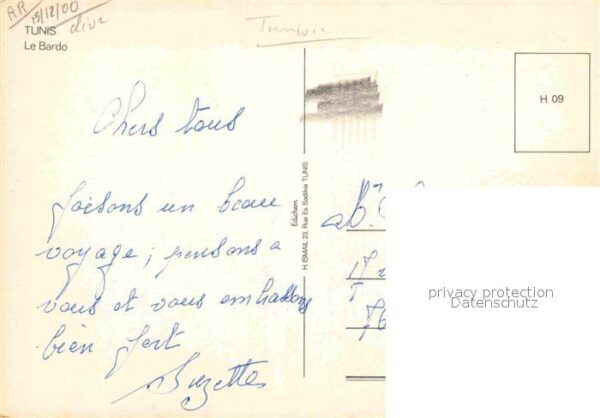 RR
15/12/00
TUNIS
Le Bardo
Tunisie
Chers tous
faisons un beau
voyage ; pensons a
vous et vous embrassons
bien fort
Suzette
Edichem
H. ISMAIL 23, Rue Es Sadikia TUNIS
H 09
privacy protection
Datenschutz